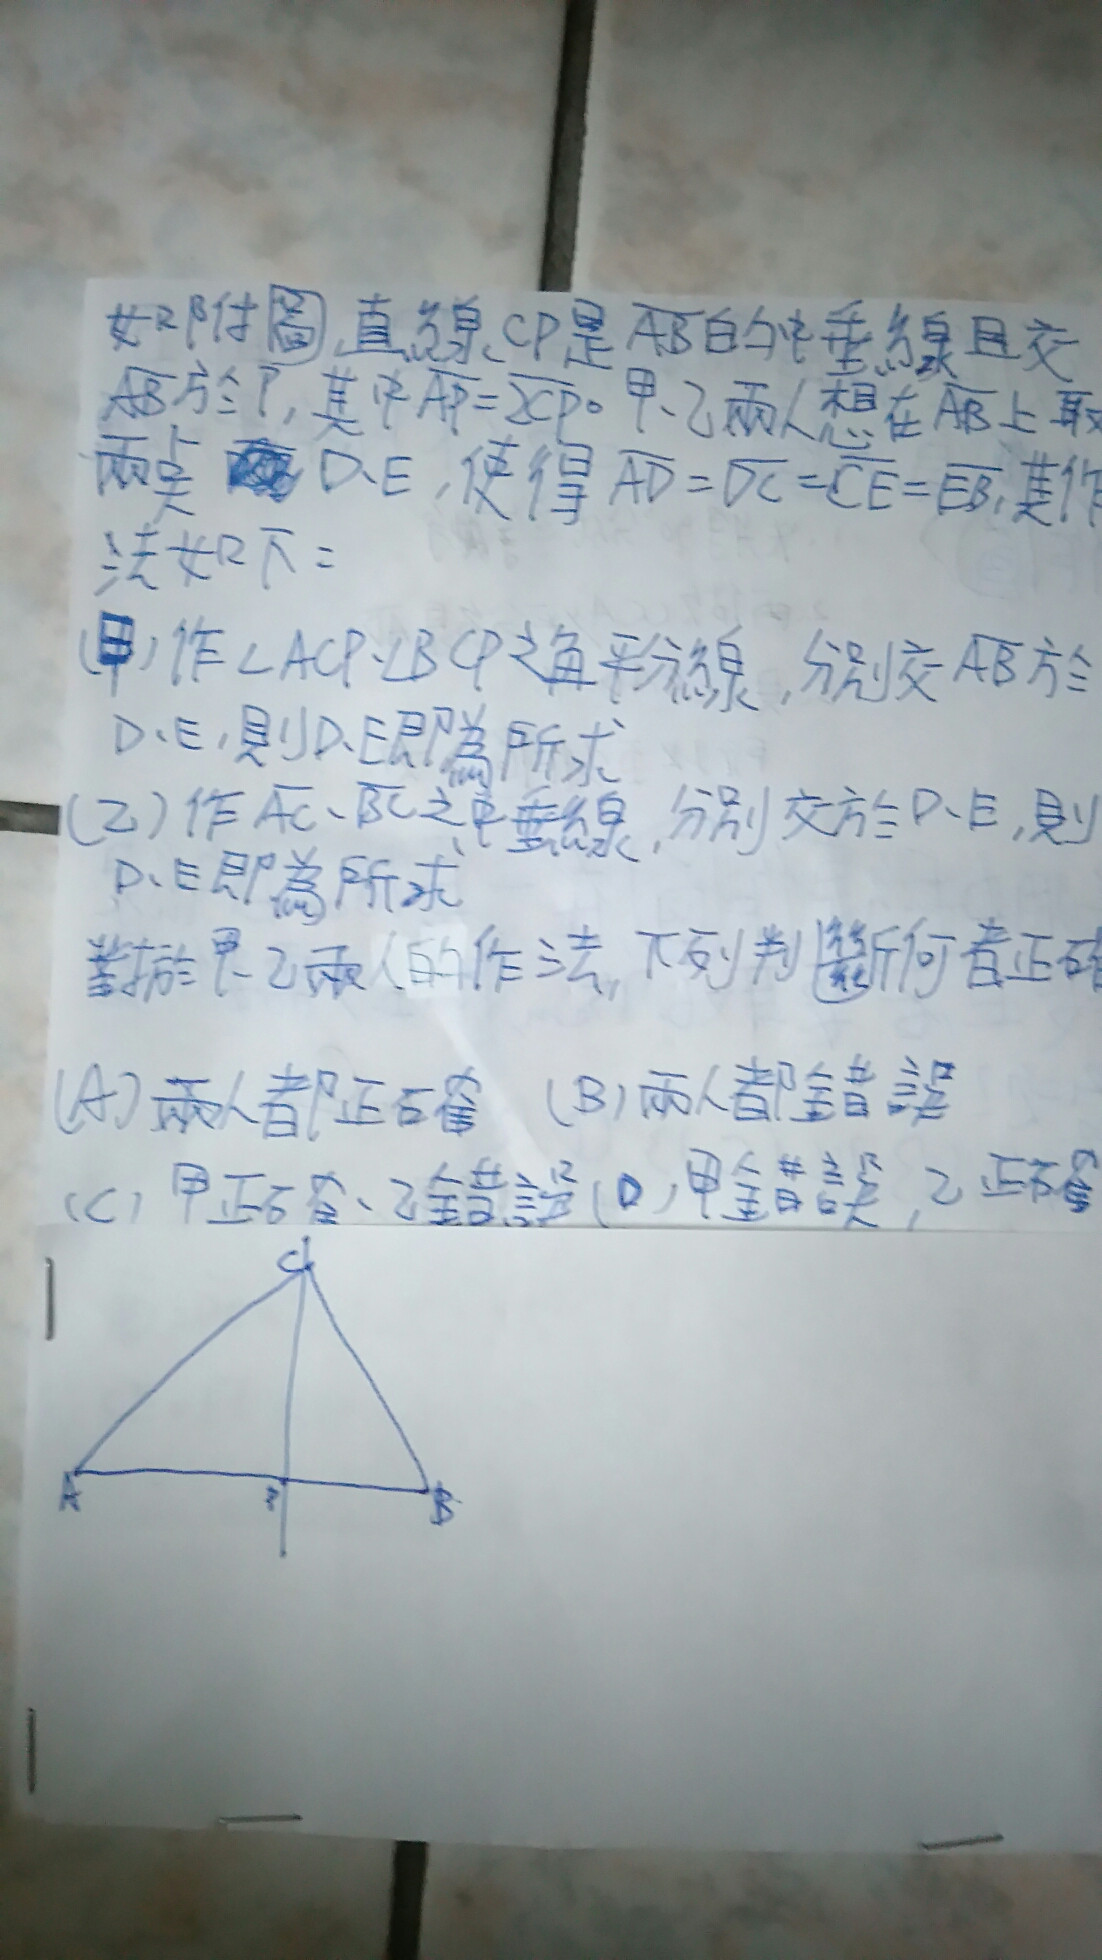 如附圖,直線CP是AB的中垂線且交
AB於P,其中AP=2CP。甲、乙兩人想在AB上取
兩點 D、E,使得AD=DC=CE=EB,其作
法如下=
(甲)作∠ACP、∠BCP之角平分線,分別交AB於
D、E,則D、E即為所求
(乙)作AC、BC之中垂線,分別交於D、E,則
D、E即為所求
對於甲、乙兩人的作法,下列判斷何者正確
(A)兩人都正確 (B)兩人都錯誤
(C)甲正確、乙錯誤(D)甲錯誤,乙正確
C
A P B